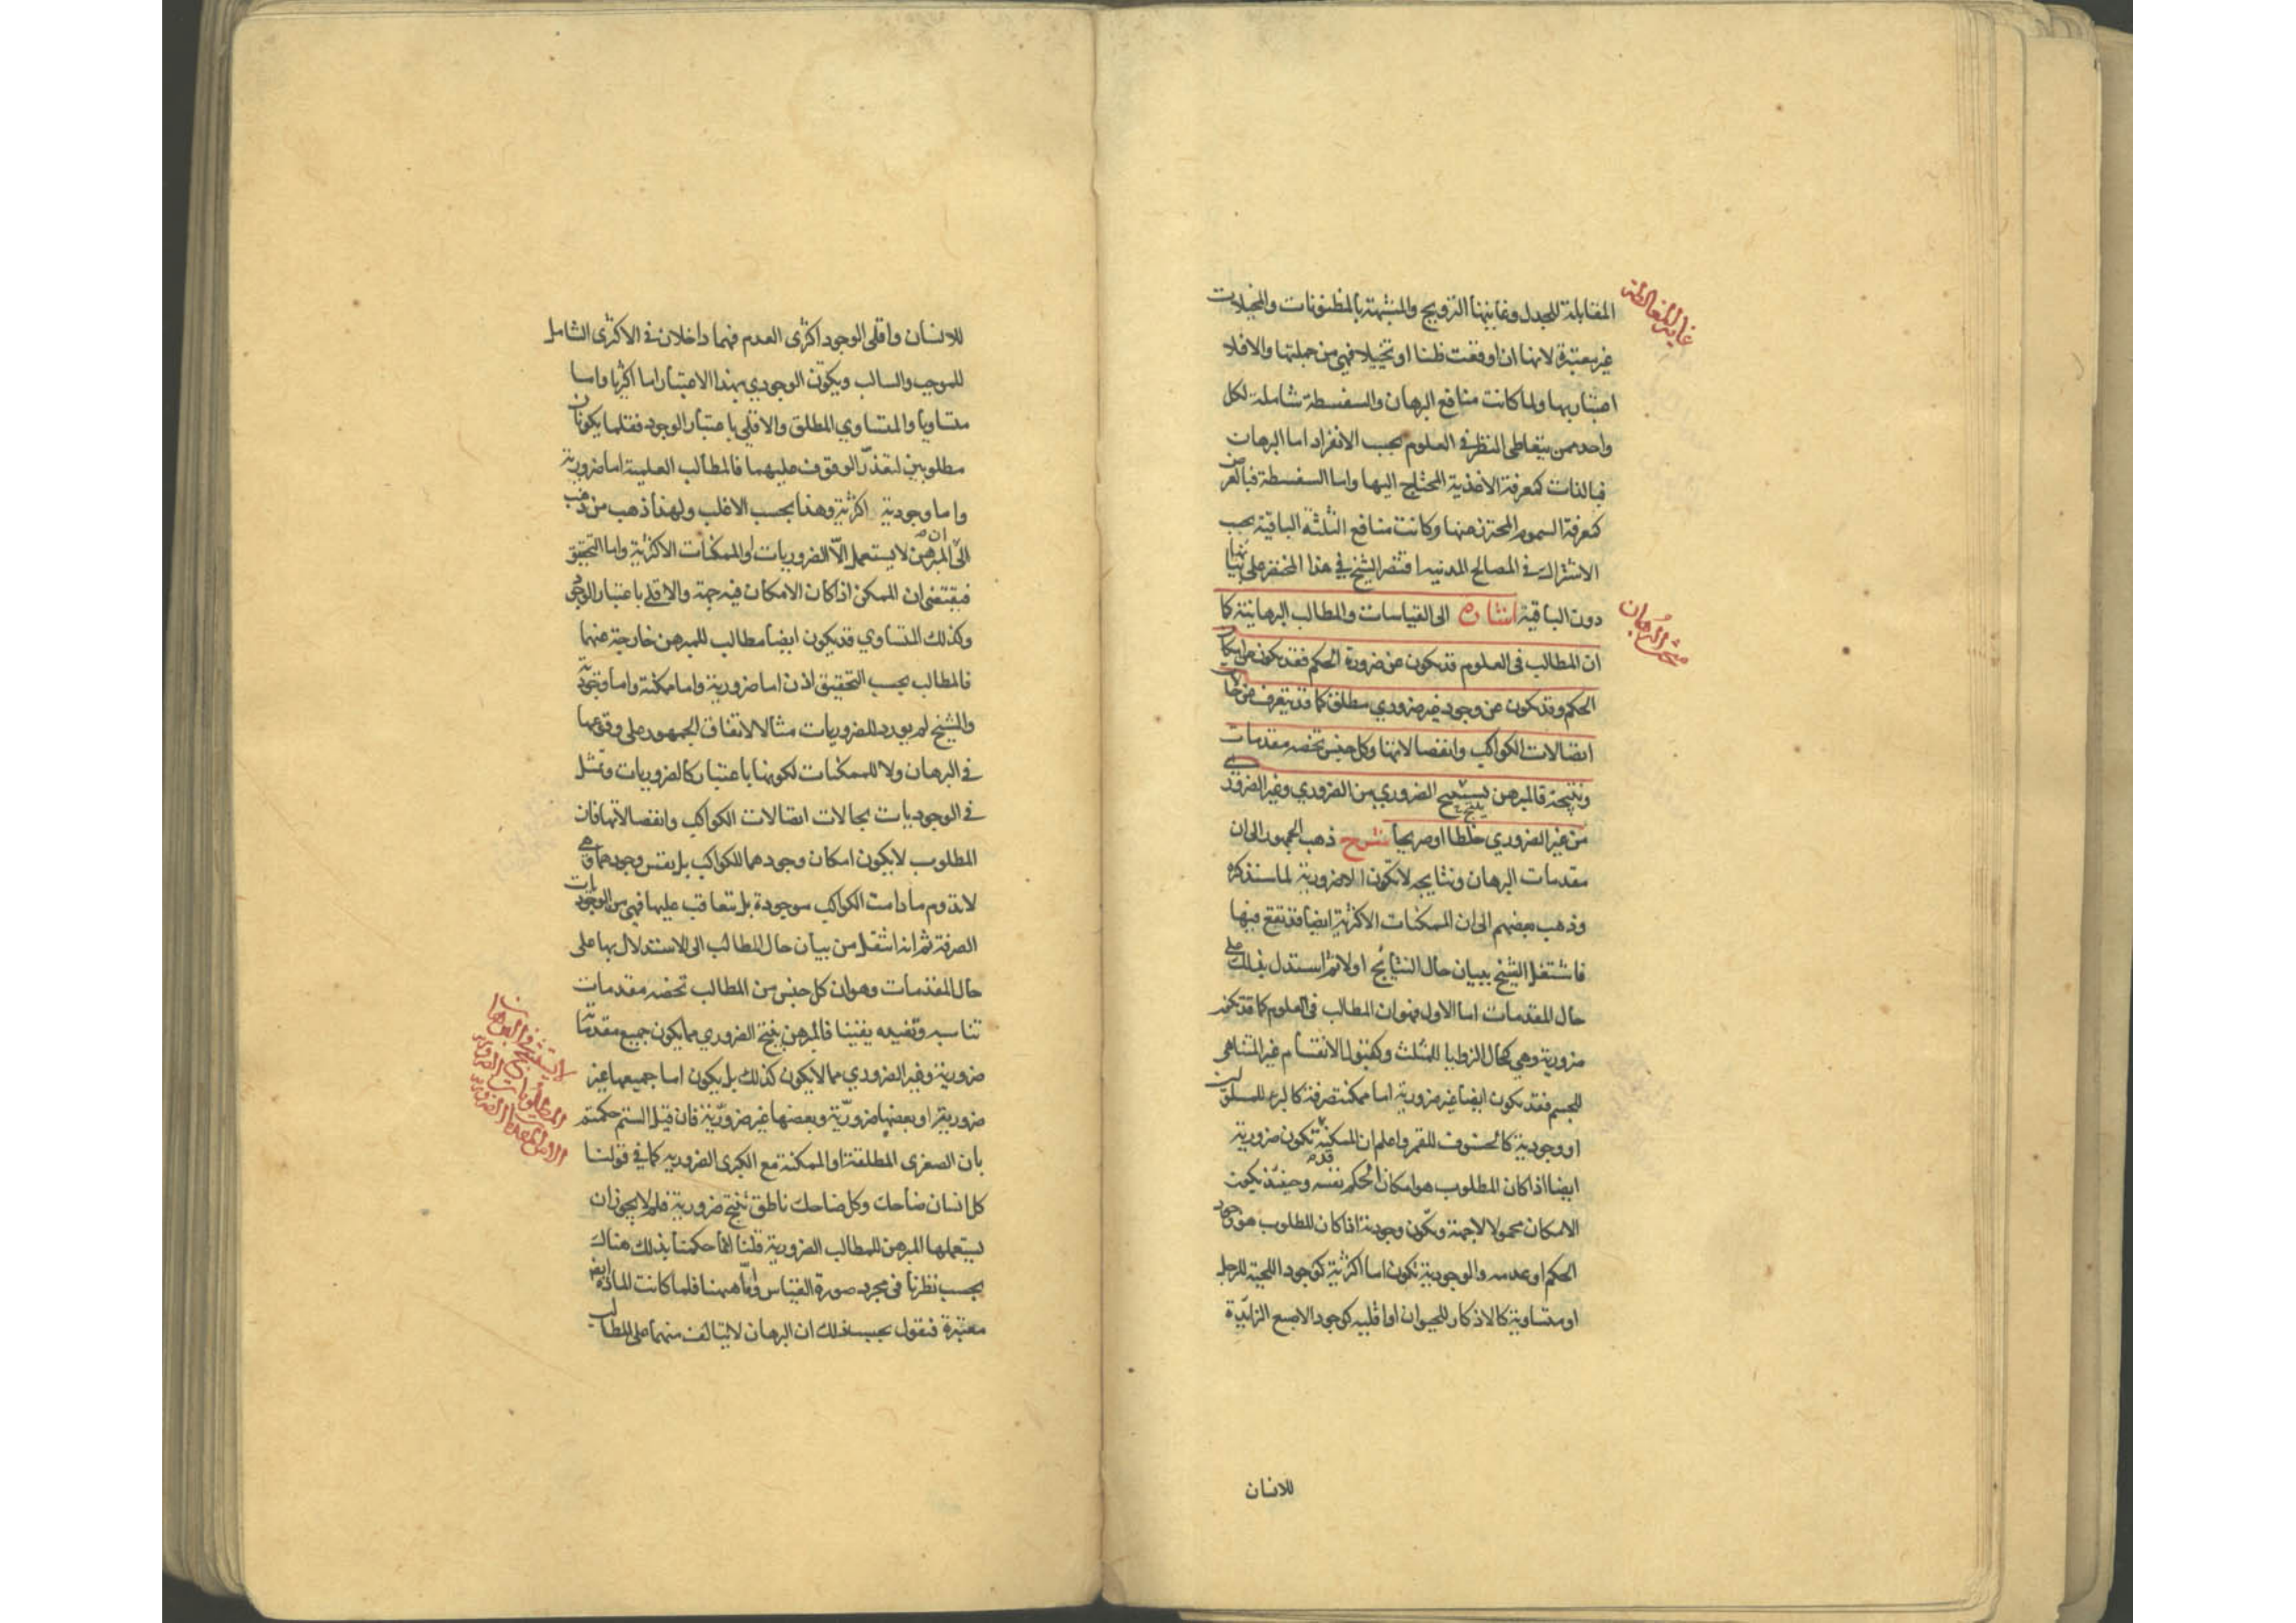 غاية المغالطة
المقابلة للجدل وغايتها الترويج والمشبهة بالمظنونات والمخيلات
غير معتبرة لانها ان اوقعت ظنا او تخييلا فهي من جملتها والا فلا
اعتبار بها ولما كانت منافع البرهان والسفسطة شاملة لكل
واحد ممن يتعاطى النظر في العلوم بحسب الانفراد اما البرهان
فبالذات كمعرفة الاغذية المحتاج اليها واما السفسطة فبالعرض
كمعرفة السموم المحترز عنها وكانت منافع الثلثة الباقية بحسب
الاشتراك في المصالح المدنية اقتصر الشيخ في هذا المختصر على بيانهما
دون الباقية اشارة الى القياسات والمطالب البرهانية كما
ان المطالب في العلوم قد يكون عن ضرورة الحكم فقد يكون عن امكان
الحكم وقد يكون عن وجود غير ضروري مطلق كما قد يتعرف عن حالات
اتصالات الكواكب وانفصالاتها وكل جنس تخصه مقدمات
ونتيجة فالمبرهن يستنتج الضروري من الضروري وغير الضروري
من غير الضروري خلطا او صريحا شرح ذهب الجمهور الى ان
مقدمات البرهان ونتايجه لا يكون الا ضرورية لما سنذكره
وذهب بعضهم الى ان الممكنات الاكثرية ايضا قد تقع فيها
فاشتغل الشيخ ببيان حال النتائج اولا ثم استدل بذلك على
حال المقدمات اما الاول فهو ان المطالب في العلوم كما قد تكون
ضرورية وهي كحال الزوايا للمثلث وكقبول الانقسام غير المتناهي
للجسم فقد يكون ايضا غير ضرورية اما ممكنة صرفة كالبرء للمسلولين
او وجودية كالخسوف للقمر واعلم ان الممكنة قد تكون ضرورية
ايضا اذا كان المطلوب هو امكان الحكم نفسه وحينئذ يكون
الامكان محمولا لا جهة ويكون وجودية اذا كان المطلوب هو وجود
الحكم او عدمه والوجودية تكون اما اكثرية كوجود اللحية للرجل
او متساوية كالاذكار للحيوان او اقلية كوجود الاصبع الزائدة
للانسان
للانسان واقلي الوجود اكثري العدم فهما داخلان في الاكثري الشامل
للموجب والسالب ويكون الوجودي بهذا الاعتبار اما اكثريا واما
متساويا والمتساوي المطلق والاقلي باعتبار الوجود فقلما يكونان
مطلوبين لتعذر الوقوف عليهما فالمطالب العلمية اما ضرورية
واما وجودية اكثرية وهذا بحسب الاغلب ولهذا ذهب من ذهب
الى ان المبرهن لا يستعمل الا الضروريات او الممكنات الاكثرية واما التحقيق
فيقتضي ان الممكن اذا كان الامكان فيه جهة والاقلي باعتبار الوجود
وكذلك المتساوي قد يكون ايضا مطالب للمبرهن خارجة عنهما
فالمطالب بحسب التحقيق اذن اما ضرورية واما ممكنة واما وجودية
والشيخ لم يورد للضروريات مثالا لاتفاق الجمهور على وقوعها
في البرهان ولا للممكنات لكونها باعتبار كالضروريات وتمثل
في الوجوديات بحالات اتصالات الكواكب وانفصالاتها فان
المطلوب لا يكون امكان وجودهما للكواكب بل نفس وجودهما وهي
لا تدوم ما دامت الكواكب موجودة بل تتعاقب عليها فهي من الوجوديات
الصرفة ثم انه انتقل من بيان حال المطالب الى الاستدلال بها على
حال المقدمات وهو ان كل جنس من المطالب تخصه مقدمات
تناسبه وتفيده يقينا فالمبرهن ينتج الضروري مما يكون جميع مقدماته
ضرورية وغير الضروري مما لا يكون كذلك بل يكون اما جميعها غير
ضرورية او بعضها ضرورية وبعضها غير ضرورية فان قيل الستم حكمتم
بان الصغرى المطلقة او الممكنة مع الكبرى الضرورية كما في قولنا
كل انسان ضاحك وكل ضاحك ناطق تنتج ضرورية فلم لا يجوز ان
يستعملها المبرهن للمطالب الضرورية قلنا انما حكمنا بذلك هناك
بحسب نظرنا في مجرد صورة القياس واما ههنا فلما كانت المادة ايضا
معتبرة فنقول بحسب ذلك ان البرهان لا يتالف منهما على المطالب